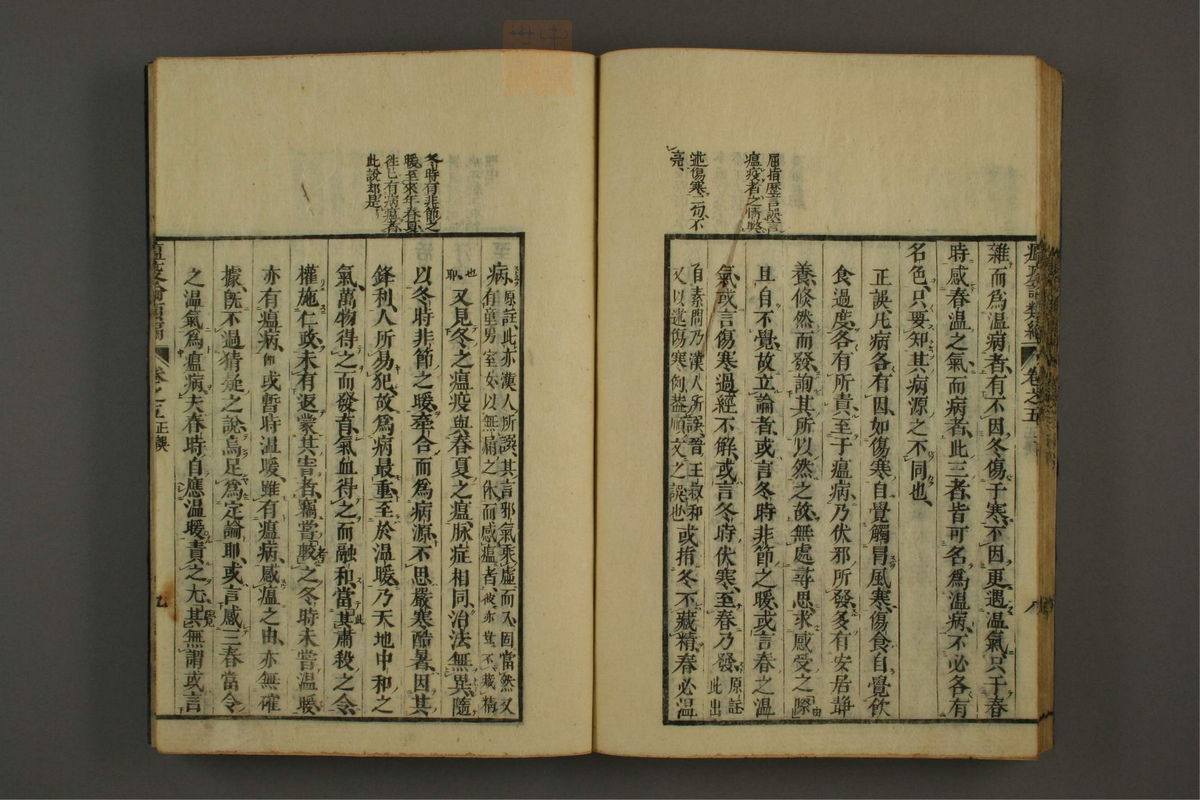 屈指歷言誤言
瘟疫者之情弊
述傷寒二句不
亮
雜而為温病者有不因冬傷于寒不因更遇温氣只于春
時感春温之氣而病者此三者皆可名為温病不必各有
名色只要知其病源之不同也
正誤凡病各有因如傷寒自覺觸冒風寒傷食自覺飲
食過度各有所責至于瘟病乃伏邪所發多有安居靜
養倏然而發詢其所以然之故無處尋思求感受之際
且自不覺故立論者或言冬時非節之暖或言春之温
氣或言傷寒過經不解或言冬時伏寒至春乃發原註此出
自素問乃漢人所誤晋王叔和又以述傷寒例蓋順文之誤也或指冬不藏精春必温
冬時有非節之
暖至來年春夏
徃已有病瘟者
此說却是
病原註此亦漢人所誤其言邪氣乘虛而入固當然又有童男室女以無漏之体而感瘟者彼亦豈不藏精
耶也又見冬之瘟疫與春夏之瘟脉症相同治法無異隨
以冬時非節之暖牽合而為病源不思嚴寒酷暑因其
鋒利人所易犯故為病最重至於温暖乃天地中和之
氣萬物得之而發育氣血得之而融和當其肅殺之令
權施仁政未有返蒙其害者竊嘗較之冬時未嘗温暖
亦有瘟病即或暫時温暖雖有瘟病感瘟之由亦無確
據旣不過猜疑之說烏足為定論耶或言感三春當令
之温氣為瘟病夫春時自應温暖責之尤其無謂或言
瘟疫論類編
卷之五正誤
九